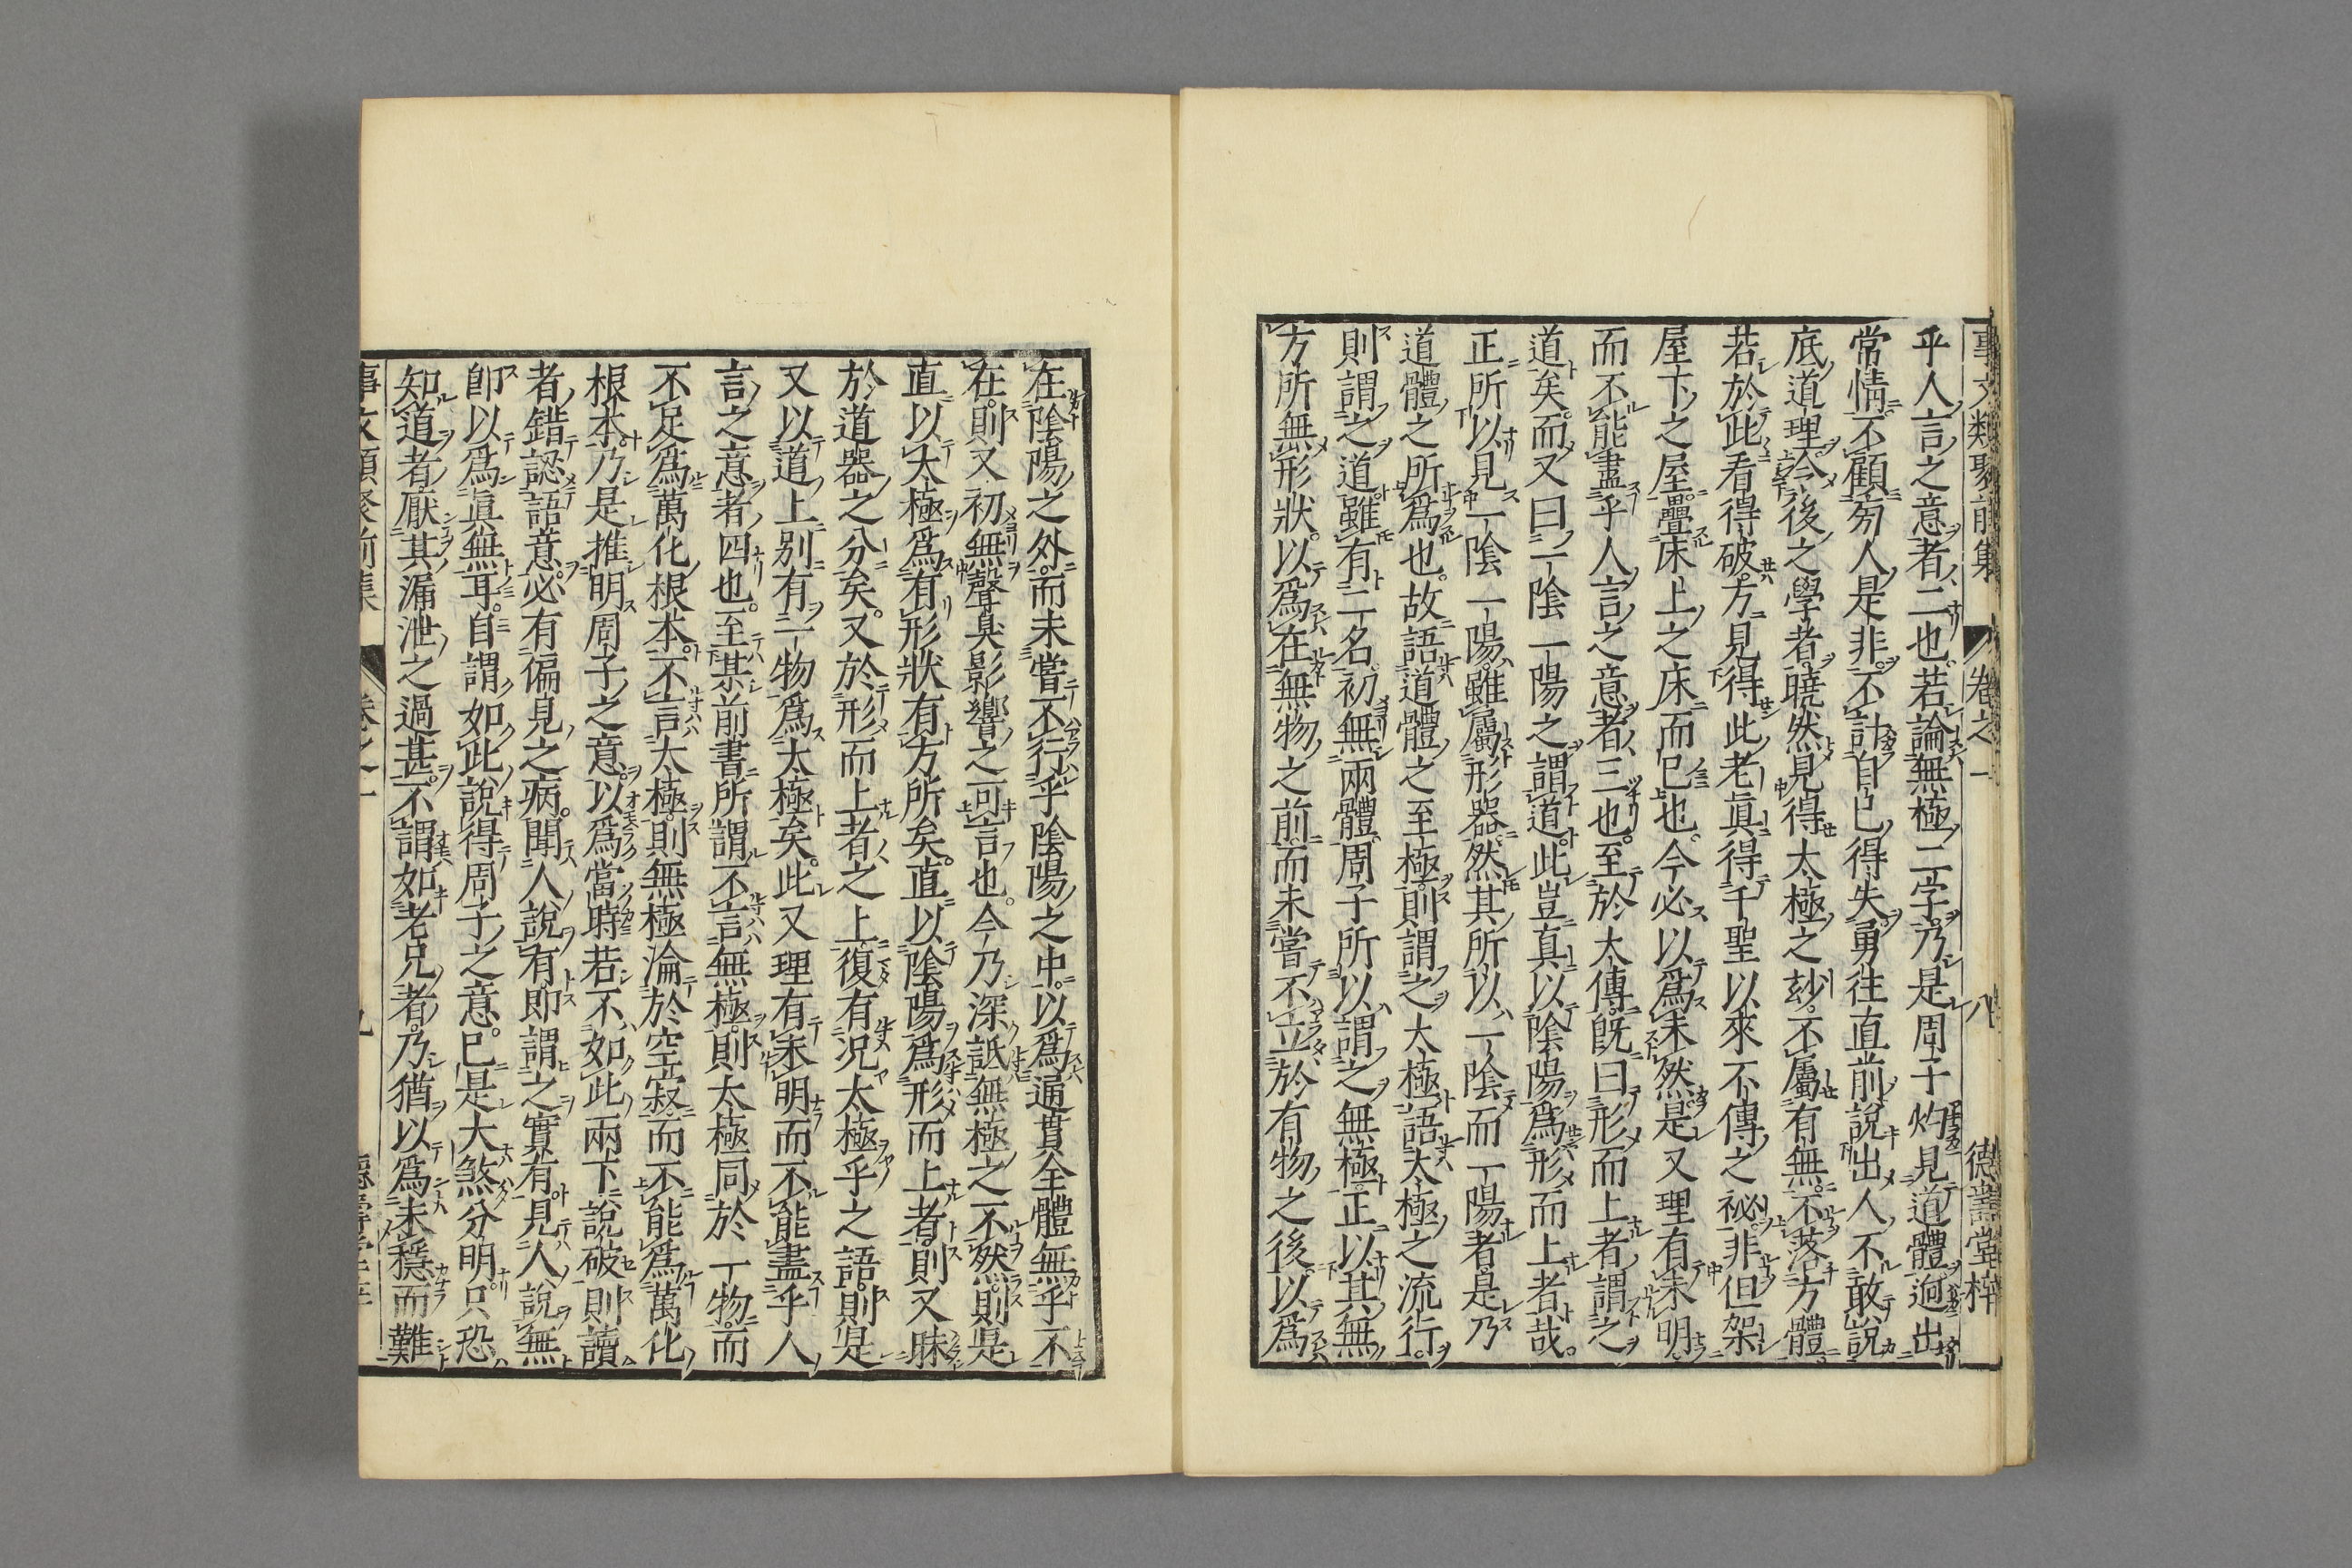 事文類聚前集 卷之一 八 德壽堂梓
乎人言之意者二也若論無極二字乃是周子灼見道體逈出
常情不顧旁人是非不計自已得失勇往直前說出人不敢說
底道理令後之學者曉然見得太極之玅不屬有無不落方體
若於此看得破方見得此老眞得千聖以來不傳之祕非但架
屋下之屋疊床上之床而已也今必以爲未然是又理有未明
而不能盡乎人言之意者三也至於太傳旣曰形而上者謂之
道矣而又曰一陰一陽之謂道此豈真以陰陽爲形而上者哉
正所以見一陰一陽雖屬形器然其所以一陰而一陽者是乃
道體之所爲也故語道體之至極則謂之太極語太極之流行
則謂之道雖有二名初無兩體周子所以謂之無極正以其無
方所無形狀以爲在無物之前而未嘗不立於有物之後以爲
在陰陽之外而未嘗不行乎陰陽之中以爲通貫全體無乎不
在則又初無聲臭影響之可言也今乃深詆無極之不然則是
直以太極爲有形狀有方所矣直以陰陽爲形而上者則又昧
於道器之分矣又於形而上者之上復有况太極乎之語則是
又以道上别有一物爲太極矣此又理有未明而不能盡乎人
言之意者四也至某前書所謂不言無極則太極同於一物而
不足爲萬化根本不言太極則無極淪於空寂而不能爲萬化
根本乃是推明周子之意以爲當時若不如此兩下說破則讀
者錯認語意必有偏見之病聞人說有即謂之實有見人說無
即以爲眞無耳自謂如此說得周子之意已是大煞分明只恐
知道者厭其漏泄之過甚不謂如老兄者乃猶以爲未穩而難
事文類聚前集 卷之一 九